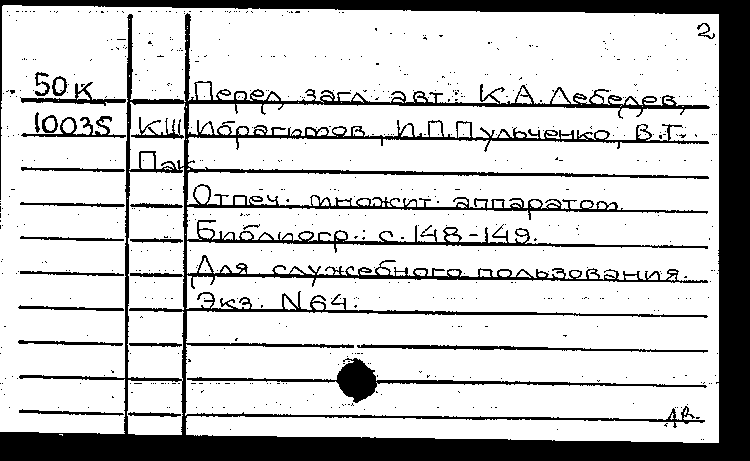 2
50К Перед загл. авт.: К.А. Лебедев,
10035 К.Ш. Ибрагимов, И.П. Пульченко, В.Г.
Пак
Отпеч. множит. аппаратом.
Библиогр.: с. 148-149.
Для служебного пользования.
Экз. N 64.